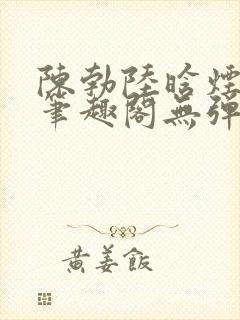 陳勃陸晗煙
筆趣閣無彈
黃姜飯